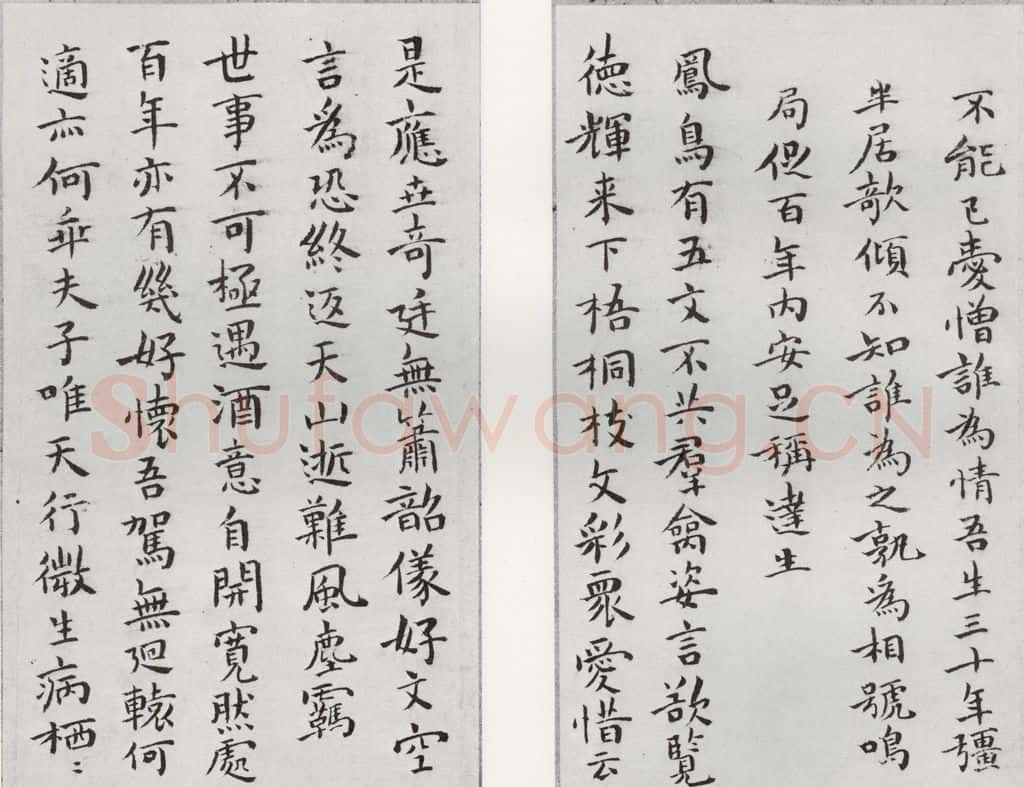 不能已憂憎誰為情吾生三十年彊
半居欹傾不知誰為之孰為相號鳴
局促百年内安足稱達生
鳳鳥有五文不共羣禽姿言欲覽
德輝来下梧桐枝文彩眾愛惜云
是應世奇廷無簫韶儀好文空
言為恐終返天山逝難風塵羈
世事不可極遇酒意自開寬然處
百年亦有幾好懷吾駕無迴轅何
適亦何乖夫子唯天行微生病栖〻
Shufawang.CN